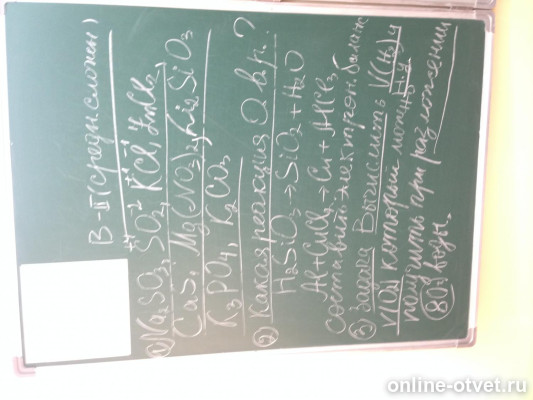 В-II (средн. сложн)
① Na2SO3, SO2, KCl, ZnCl2,
CaS, Mg(NO3)2, Li2SiO3
K3PO4, K2CO3
② Какая реакция О.в.р.?
H2SiO3 → SiO2 + H2O
Al + CuCl2 → Cu + AlCl3
составить электрон. баланс
③ Задача Вычислить V(H2) и
V(O2) который можно
получить при разложении
80г воды.
online-otvet.ru